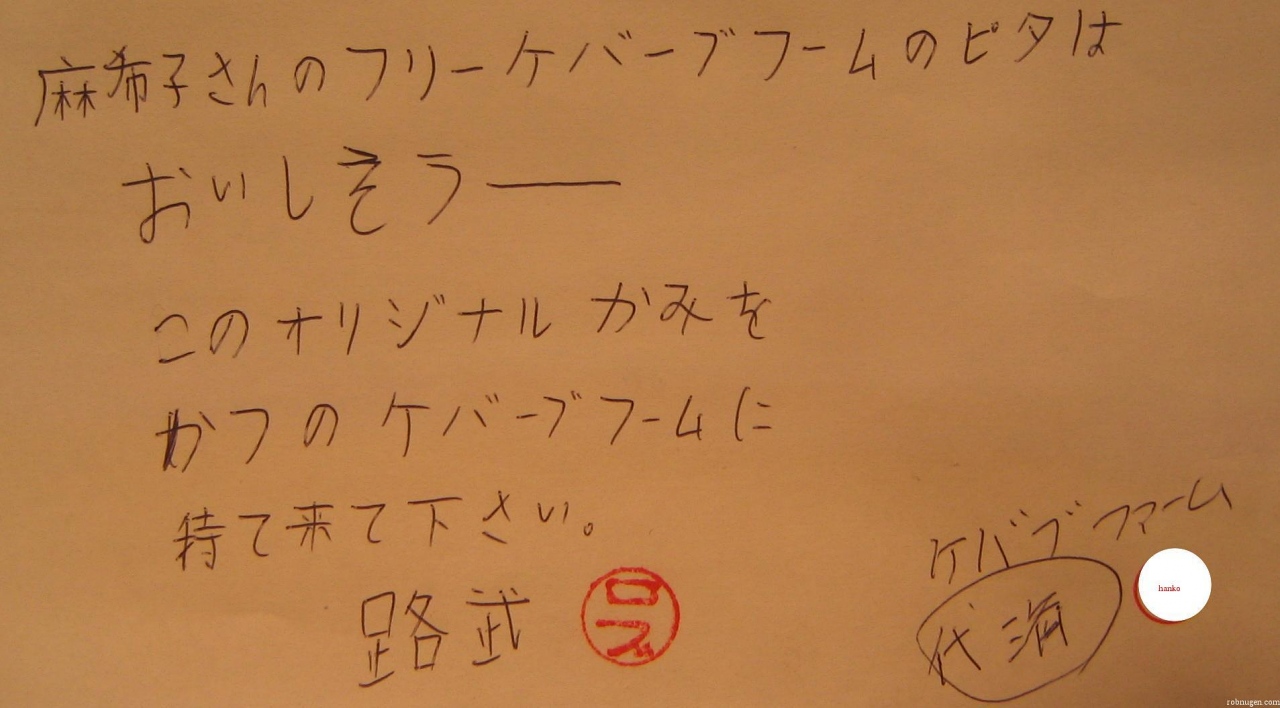 麻希子さんのフリーケバーブフームのピタは
おいしそうー
このオリジナル かみを
かつのケバーブフームに
待て来て下さい。
路武
ロブ
ケバブファーム
代済
hanko
robnugen.com